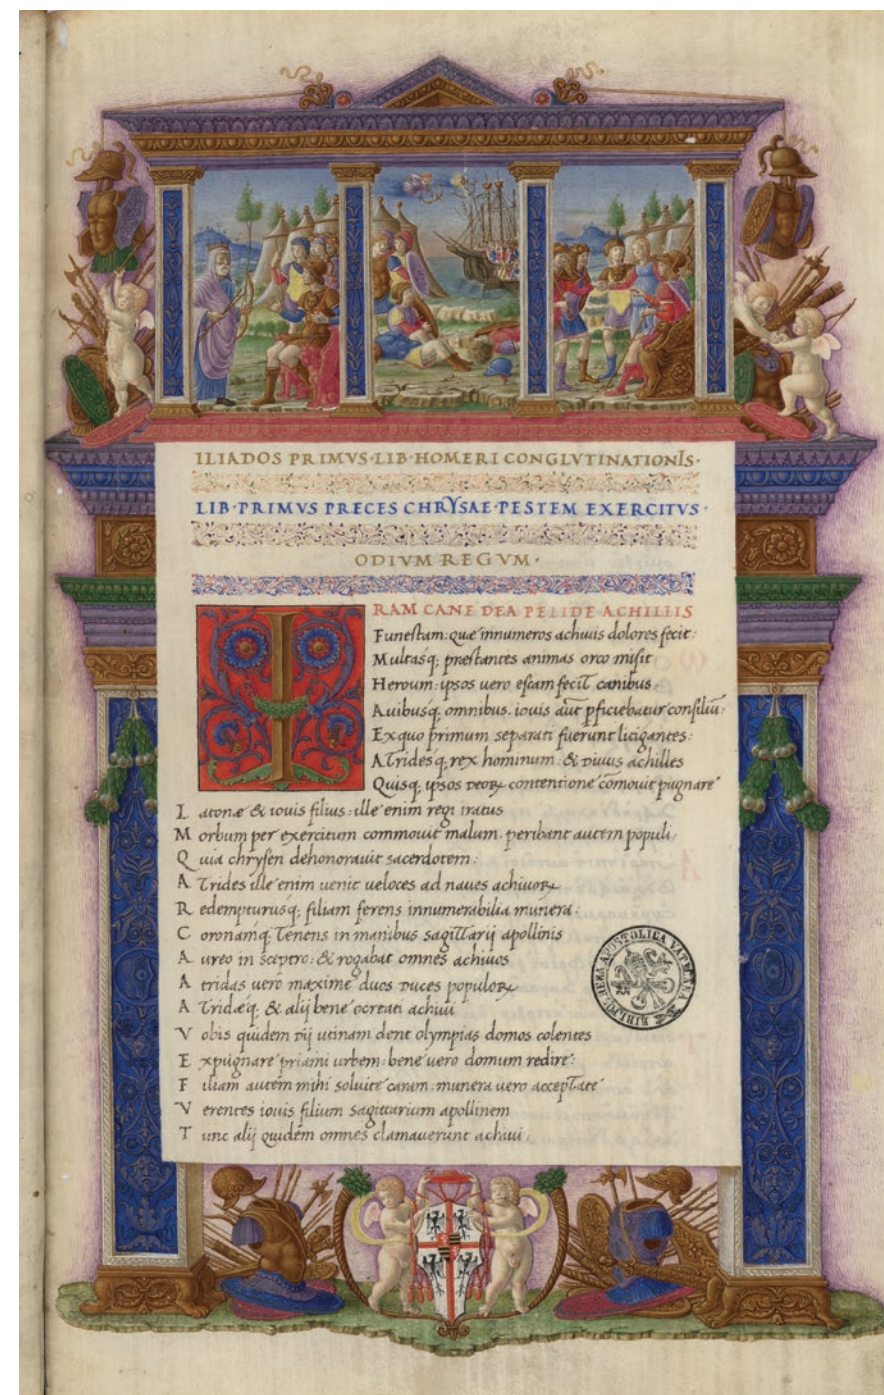 ILIADOS PRIMVS·LIB·HOMERI CONGLVTINATIONIS·
LIB·PRIMVS PRECES CHRYSAE·PESTEM EXERCITVS·
ODIVM REGVM·
IRAM CANE DEA PELIDE ACHILLIS
Funestam: quæ innumeros achiuis dolores fecit:
Multasq; præstantes animas orco misit
Heroum: ipsos uero escam fecit canibus,
Auibusq; omnibus. iouis aut̄ ꝑficiebatur consiliū:
Ex quo primum separati fuerunt licigantes:
ATridesq; rex hominum: & diuus achilles
Quisq; ipsos deoꝝ contentione cōmouit pugnare
Latonæ & iouis filius: ille enim regi iratus
Morbum per exercitum commouit malum. peribant autem populi,
Quia chrysen dehonorauit sacerdotem:
ATrides ille enim uenit ueloces ad naues achiuoꝝ
Redempturusq; filiam ferens innumerabilia munera:
Coronamq; Tenens in manibus sagiTTarij apollinis
Aureo in sceptro: & rogabat omnes achiuos
Atridas uero maxime duos duces populoꝝ
ATridæq; & alij bene ocreati achiui
Vobis quidem dij utinam dent olympias domos colentes
Expugnare priami urbem: bene uero domum redire:
Filiam autem mihi soluite caram: munera uero accepTate
Verentes iouis filium sagittarium apollinem
Tunc alij quidem omnes clamauerunt achiui,
BIBLIOTHECA APOSTOLICA VATICANA